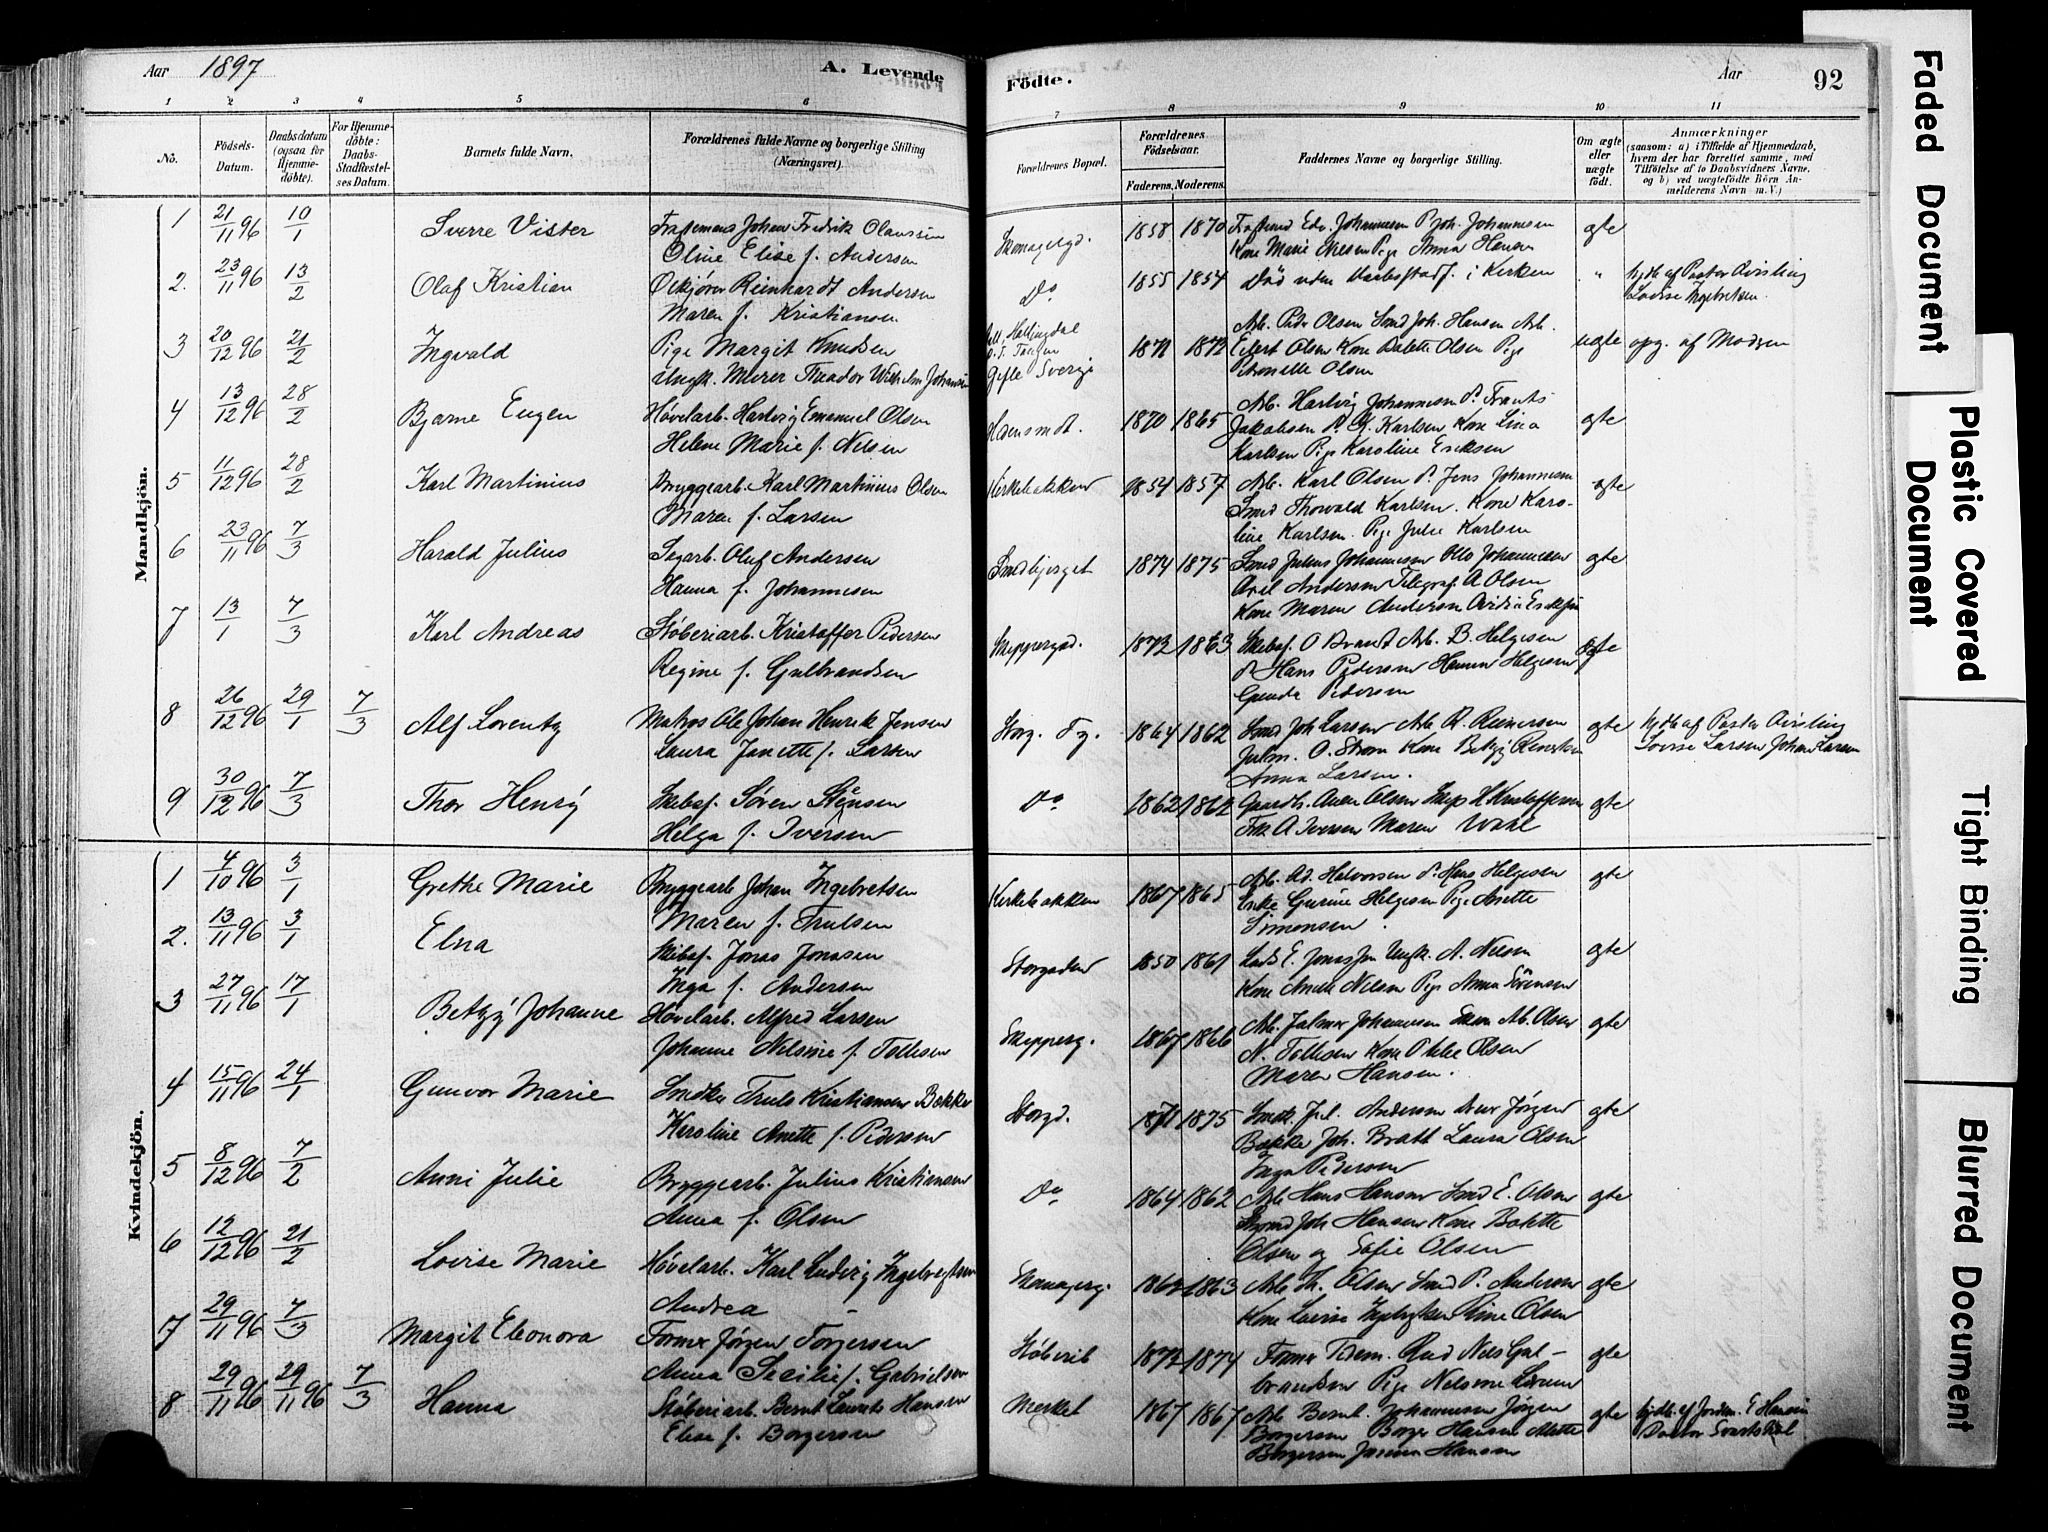 Aar 1897 A. Levende
Födte. Aar 92
1 2 3 4 5 6 7 8 9 10 11
No. Födsels-Datum. Daabsdatum (ogsaa for Hjemmedöbte). For Hjemmedöbte: Daabs-Stadfæstelses Datum. Barnets fulde Navn. Forældrenes fulde Navne og borgerlige Stilling (Næringsvei).
Forældrenes Bopæl. Forældrenes Födselsaar. Faderens. Moderens. Faddernes Navne og borgerlige Stilling. Om ægte eller uægte födt. Anmærkninger (saasom: a) i Tilfælde af Hjemmedaab, hvem der har forrettet samme, med Tilföielse af to Daabsvidners Navne, og b) ved uægtefödte Börn Anmelderens Navn m. V.)
Mandkjön.
1 21/11 96 10/1 Sverre Vister Johan Fredrik Olaussen
Oline Elise f. Andersen
1858 1870 Edv. Johannesen P. Joh. Johannesen
Kone Marie Nielsen Pige Anna Hansen ægte
2. 23/11 96 13/2 Olaf Kristian Reinhardt Andersen
Maren f. Kristiansen
Do 1855 1854 Död uden Daabsstadf. i Kirken " hjdb. af Pastor Qvisling
Lovise Ingebretsen.
3 20/12 96 21/2 Ingvald Pige Margit Knudsen
Ungk. Murer Theodor Wilhelm Johansen
Hallingdal
Gefle Sverige
1871 1872 Arb. Peder Olsen Smed Joh. Hansen Arb.
Edvert Olsen Kone Bolette Olsen Pige
Petronelle Olsen uægte opg. af Moderen
4 13/12 96 28/2 Bjarne Eugen Høvelarb. Hartvig Emanuel Olsen
Helene Marie f. Nilsen
1870 1865 Arb. Hartvig Johannesen do. Frants
Jakobsen do. K. Karlsen Kone Lina
Karlsen Pige Karoline Eriksen ægte
5 11/12 96 28/2 Karl Martinius Bryggearb. Karl Martinius Olsen
Maren f. Larsen
Kirkebakken 1854 1857 Arb. Karl Olsen do. Jens Johannesen
Smed Thorvald Karlsen. Kone Karo-
line Karlsen. Pige Julie Karlsen ægte
6 23/11 96 7/3 Harald Julius Sagarb. Oluf Andersen
Hanna f. Johannesen
Smedbjerget 1874 1875 Smed Julius Johannesen Otto Johannesen
Axel Andersen Telegraf. A. Olsen
Kone Maren Andersen ægte
7 13/1 7/3 Karl Andreas Støberiarb. Kristoffer Pedersen
Regine f. Gulbrandsen
Skippergad. 1872 1863 Skibsf. O Brandt Arb. B. Helgesen
do Hans Pedersen Helgesen
Pedersen ægte
8 26/12 96 29/1 7/3 Alf Lorentz Matros Ole Johan Henrik Jensen
Laura Janette f. Larsen
1864 1862 Smed Joh Larsen Arb. R. Reinersen
O. Strøm Kone Betzy Reinertsen
Anna Larsen. ægte hjdb. af Pastor Qvisling
Lovise Larsen Johan Larsen
9 30/12 96 7/3 Thor Henry Skibsf. Søren Stensen
Helga f. Iversen
Do 1862 1862 Olsen Skip. H Kristoffersen
Frk. A Iversen Maren Wahl ægte
Kvindekjön.
1 4/10 96 3/1 Grethe Marie Bryggearb Johan Ingebretsen
Maren f. Trulsen
Kirkebakken 1867 1865 Arb. Ad. Halvorsen do. Hans Helgesen
Enke Gurine Helgesen Pige Anette
Simonsen. ægte
2. 13/11 96 3/1 Elna Skibsf. Jonas Jonasen
Inga f. Andersen
Storgaden 1850 1861 Lods E. Ungk. A. Nilsen
Kone Anette Nilsen Pige Anna Sörensen ægte
3 27/11 96 17/1 Betzy Johanne Høvelarb. Alfred Larsen
Johanne Nelsine f. Tollesen
Skipperg. 1867 1866 Arb. Hjalmar Johannesen Olsen
N. Tollesen Kone Olsen
Maren Hansen. ægte
4 15/11 96 24/1 Gunvor Marie Smedkr Truls Kristiansen Bakke
Karoline Anette f. Pedersen
Storgd. 1871 1875 Smedk. Jul. Andersen Jørgen
Bakke Joh. Bratt Laura Olsen
Inga Pedersen ægte
5 8/12 96 7/2 Anni Julie Bryggearb. Julius Kristiansen
Anna f. Olsen
Do 1864 1862 Arb Hans Hansen Smed E. Olsen
Joh Hansen Kone Bolette
Olsen og Sofie Olsen ægte
6 12/12 96 21/2 Lovise Marie Høvelarb. Karl Ludvig Ingebretsen
Andrea -
1863 Arb Th. Olsen Smed P. Andersen
Kone Lovise Ingebretsen Olsen ægte
7 29/11 96 7/3 Margit Eleonora Former Jørgen Torgersen
Anna Secilie f. Gabrielsen
Støberib 1872 1874 Former Nils Gul-
brandsen Pige Nelsine Larsen ægte
8 29/11 96 29/11 96 7/3 Hanna Støberiarb. Bernt Laurits Hansen
Elise f. Borgersen
Merket 1867 1867 Arb Bernh. Johannesen Jørgen
Borgersen Borger Hansen Mette
Borgersen Hansen ægte hjdb. af Jordm. E Hansen
Faded Document
Plastic Covered Document
Tight Binding
Blurred Document